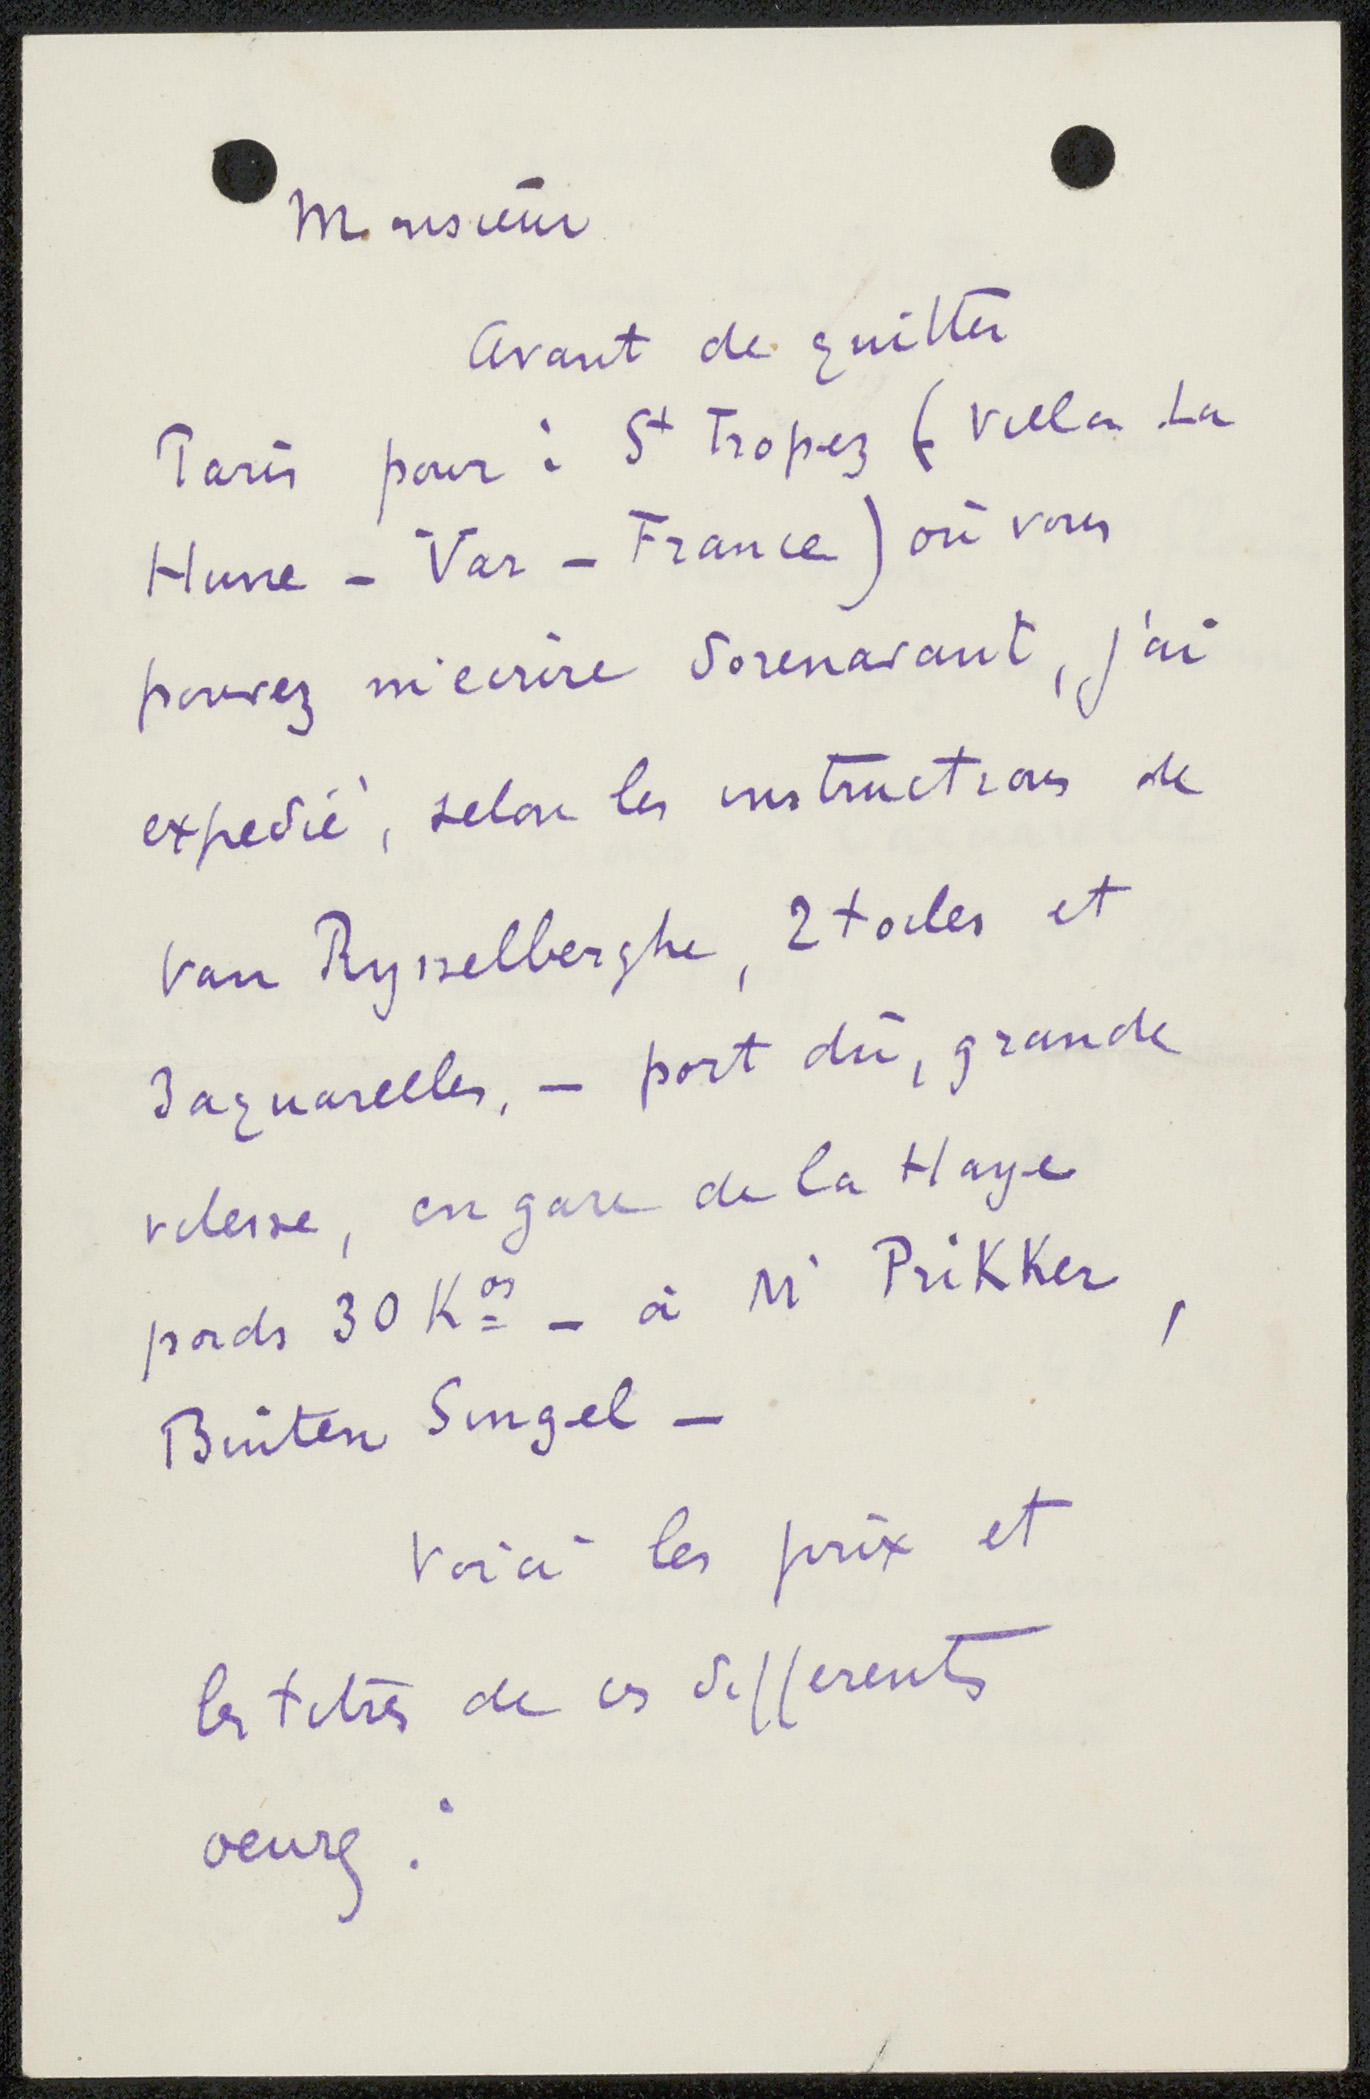 Monsieur
Avant de quitter
Paris pour : St Tropez (Villa La
Hune - Var - France) où vous
pouvez m'ecrire dorenavant, j'ai
expedié, selon les instructions de
Van Rysselberghe, 2 toiles et
3 aquarelles, - port dû, grande
vitesse, en gare de la Haye
poids 30 Kos - à Mr Prikker,
Buiten Singel -
Voici les prix et
les titres de ces differents
oeuvres :